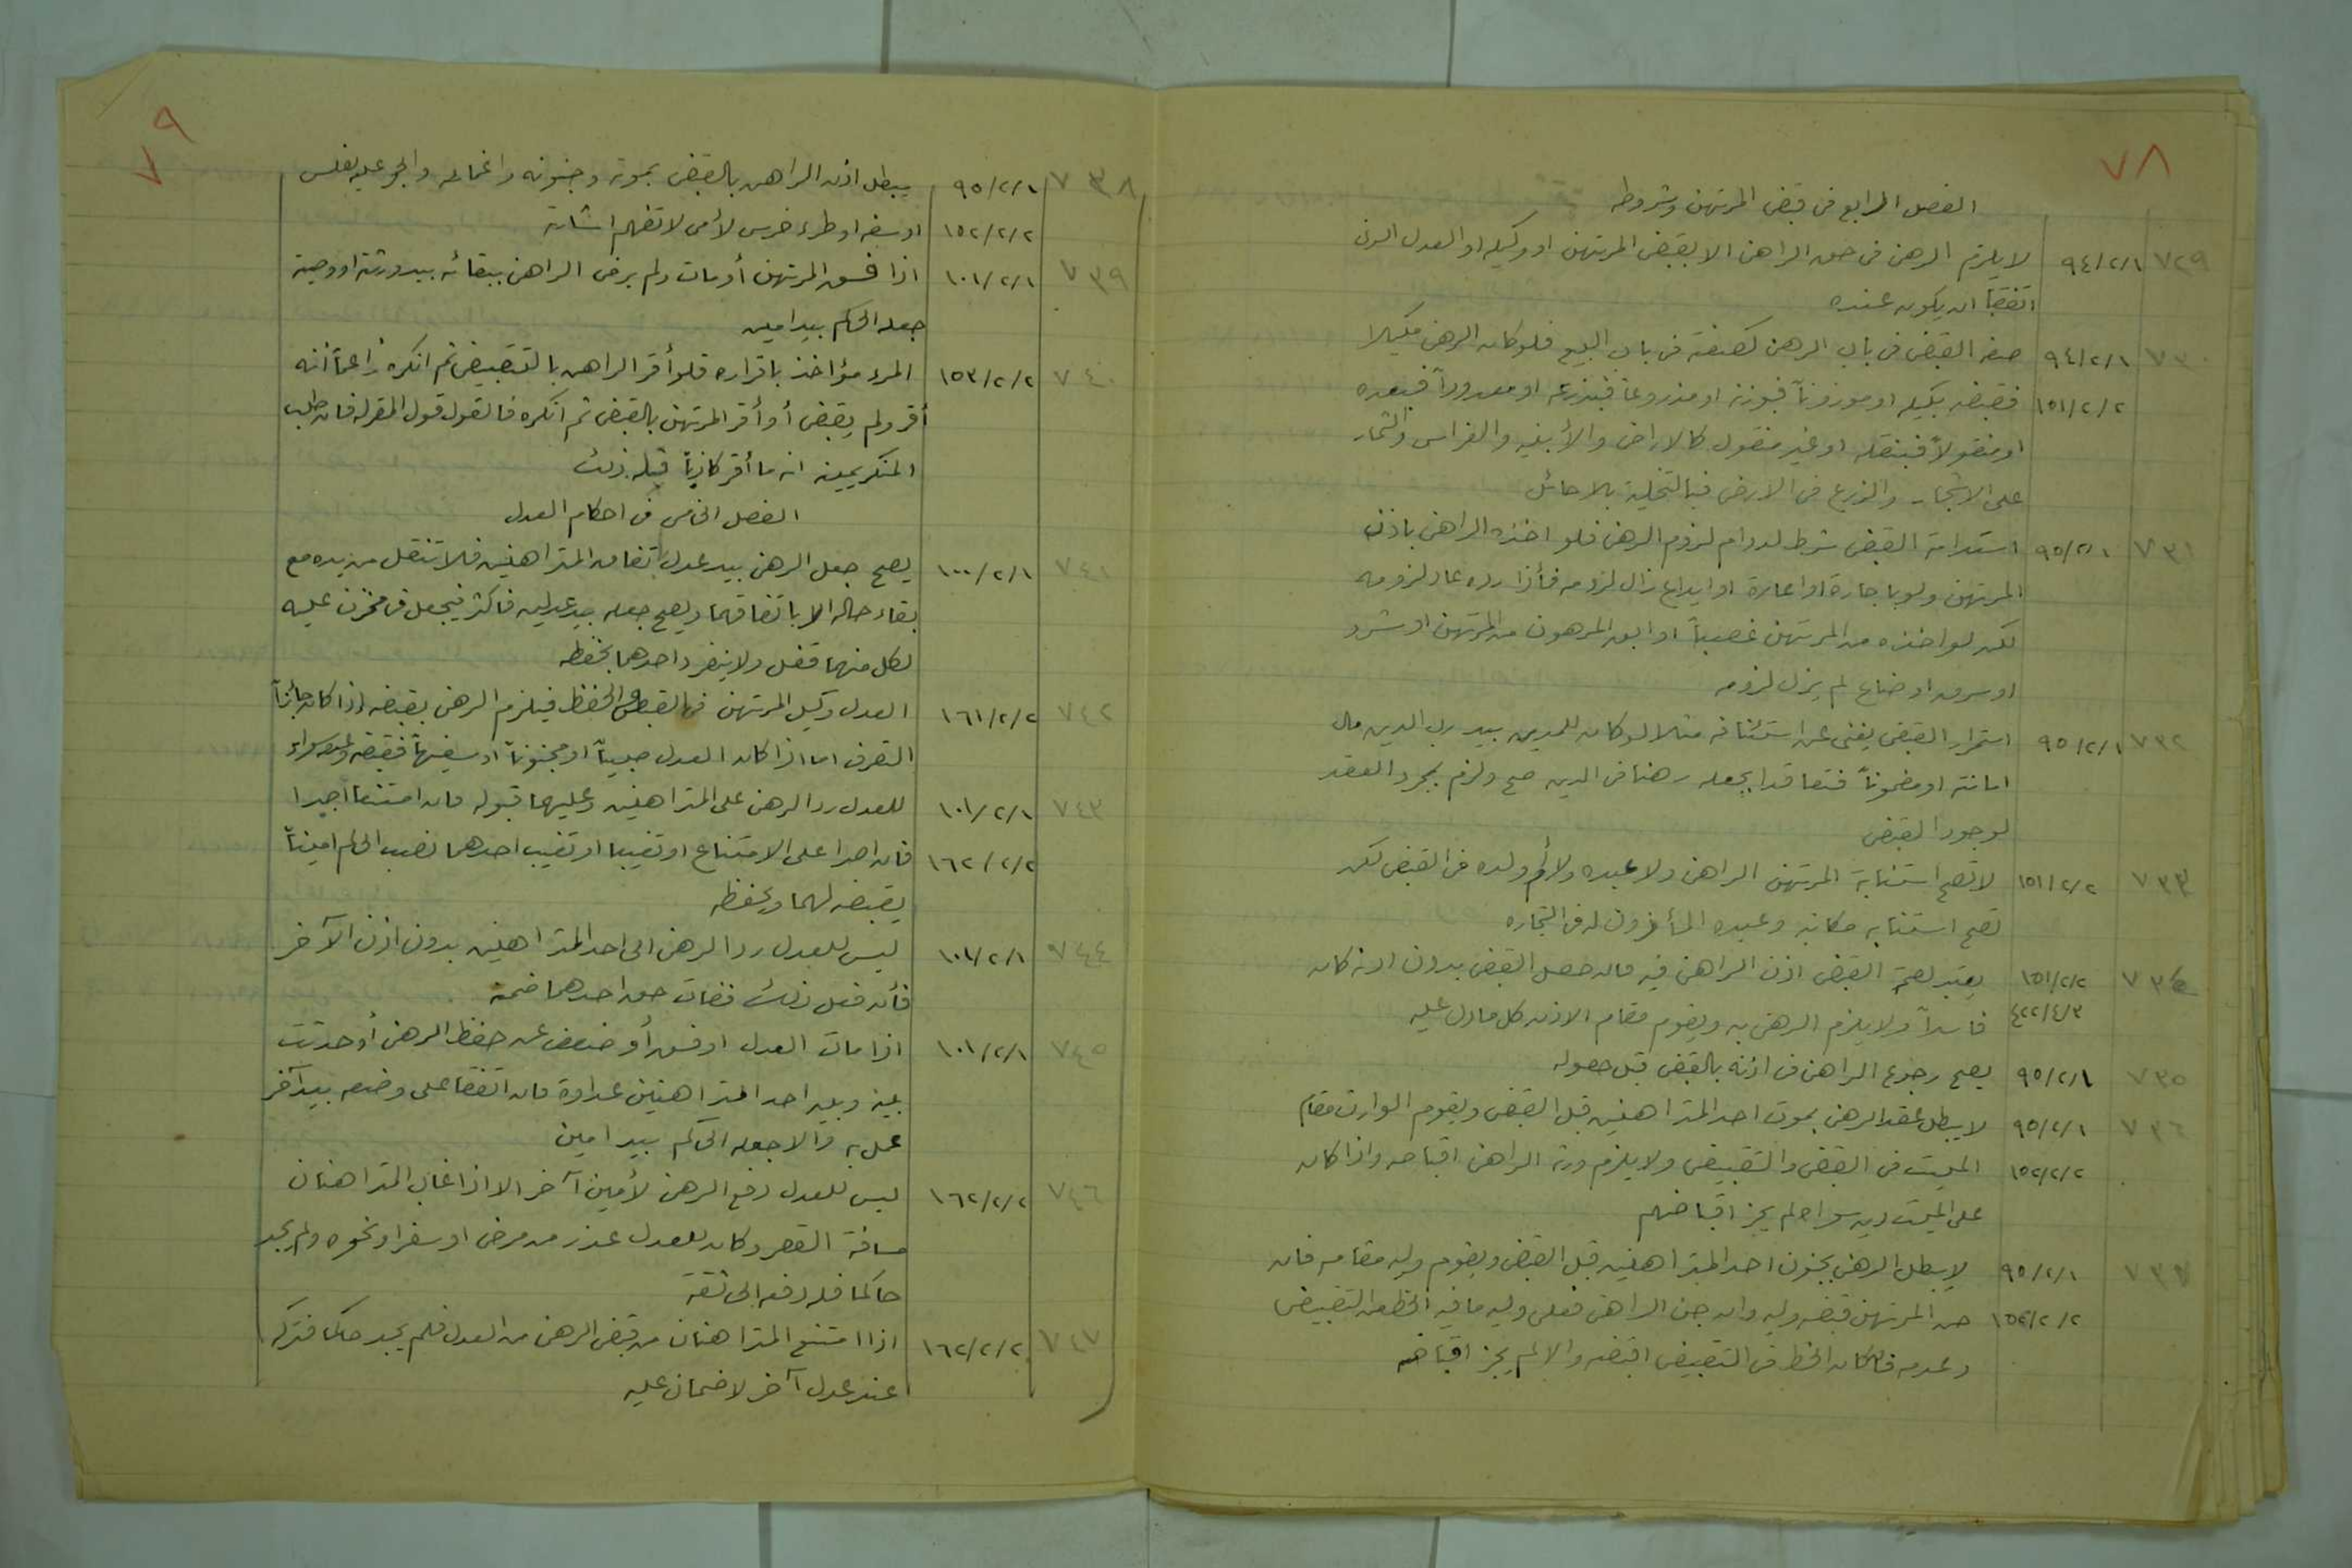 ٧٨
الفصل الرابع في قبض المرتهن وشروطه
٧٢٩ ٩٤/٢/١ لا يلزم الرهن في حق الراهن الا بقبض المرتهن او وكيله او العدل الذي
اتفقا ان يكون عنده
٧٣٠ ٩٤/٢/١ صفة القبض في باب الرهن كصفته في باب البيع فلو كان الرهن مكيلا
١٥١/٢/٢ فقبضه بكيله او موزوناً فبوزنه او مذروعاً فبذرعه او معدوداً فبعده
او منقولاً فبنقله او غير منقول كالاراضي والأبنيه والغراس والثمار
على الاشجار والزرع في الارض فبالتخلية بلا حائل
٧٣١ ٩٥/٢/١ استدامة القبض شرط لدوام لزوم الرهن فلو اخذه الراهن باذن
المرتهن ولو باجارة او اعارة او ايداع زال لزومه فأذا رده عاد لزومه
لكن لو اخذه من المرتهن غصباً او ابق المرهون من المرتهن او شرد
او سرق او ضاع لم يزل لزومه
٧٣٢ ٩٥/٢/١ استمرار القبض يغني عن استئنافه مثلا لو كان للمدين بيد رب الدين مال
امانة او مضموناً فتعاقدا بجعله رهنا في الدين صح ولزم بمجرد العقد
لوجود القبض
٧٣٣ ١٥١/٢/٢ لا تصح استنابة المرتهن الراهن ولا عبده ولا أم ولده في القبض لكن
تصح استنابه مكاتبه وعبده المأذون له في التجاره
٧٣٤ ١٥١/٢/٢ يعتبر لصحة القبض اذن الراهن فيه فان حصل القبض بدون اذنه كان
٤٢٢/٤/٣ فاسداً ولا يلزم الرهن به ويقوم مقام الاذن كل ما دل عليه
٧٣٥ ٩٥/٢/١ يصح رجوع الراهن في اذنه بالقبض قبل حصوله
٧٣٦ ٩٥/٢/١ لا يبطل عقد الرهن بموت احد المتراهنين قبل القبض ويقوم الوارث مقام
١٥٢/٢/٢ الميت في القبض والتقبيض ولا يلزم ورثة الراهن اقباضه واذا كان
على الميت دين سواه لم يجز اقباضهم
٧٣٧ ٩٥/٢/١ لا يبطل الرهن بجنون احد المتراهنين قبل القبض ويقوم وليه مقامه فان
١٥٢/٢/٢ جن المرتهن قبضه وليه وان جن الراهن فعلى وليه ما فيه الحظ من التقبيض
وعدمه فان كان الحظ في التقبيض اقبضه والا لم يجز اقباضه
٧٩
٧٣٨ ٩٥/٢/١ يبطل اذن الراهن بالقبض بموته وجنونه واغمائه والحجر عليه لفلس
١٥٢/٢/٢ او سفه او طرء خرس لأمي لا تفهم اشارته
٧٣٩ ١٠١/٢/١ اذا فسق المرتهن أو مات ولم يرض الراهن ببقائه بيد ورثته او وصيه
جعله الحاكم بيد امين
٧٤٠ ١٥٣/٢/٢ المرء مؤاخذ باقراره فلو أقر الراهن بالتقبيض ثم انكره زاعماً أنه
أقر ولم يقبض أو أقر المرتهن بالقبض ثم انكره فالقول قول المقر له فان طلب
المنكر يمينه انه ما أقر كاذباً فله ذلك
الفصل الخامس في احكام العدل
٧٤١ ١٠٠/٢/١ يصح جعل الرهن بيد عدل باتفاق المتراهنين فلا تنقل من يده مع
بقاء حاله الا باتفاقهما ويصح جعله بيد عدلين فاكثر فيجعل في مخزن عليه
لكل منهما قفل ولا ينفرد احدهما بحفظه
٧٤٢ ١٦١/٢/٢ العدل وكيل المرتهن في القبض والحفظ فيلزم الرهن بقبضه اذا كان جائز
التصرف اما اذا كان العدل صبياً او مجنوناً او سفيهاً فقبضه وعدمه سواء
٧٤٣ ١٠١/٢/١ للعدل رد الرهن على المتراهنين وعليهما قبوله فان امتنعا اجبرا
١٦٢/٢/٢ فان اصرا على الامتناع او تغيبا او تغيب احدهما نصب الحاكم اميناً
يقبضه لهما ويحفظه
٧٤٤ ١٠١/٢/١ ليس للعدل رد الرهن الى احد المتراهنين بدون اذن الآخر
فأن فعل ذلك ففات حق احدهما ضمنه
٧٤٥ ١٠١/٢/١ اذا مات العدل او فسق أو ضعف عن حفظ الرهن أو حدثت
بينه وبين احد المتراهنين عداوة فان اتفقا على وضعه بيد آخر
عمل به والا جعله الحاكم بيد امين
٧٤٦ ١٦٢/٢/٢ ليس للعدل دفع الرهن لأمين آخر الا اذا غاب المتراهنان
مسافة القصر وكان للعدل عذر من مرض او سفر او نحوه ولم يجد
حاكما فله دفعه الى ثقة
٧٤٧ ١٦٢/٢/٢ اذا امتنع المتراهنان من قبض الرهن من العدل فلم يجد حاكما فتركه
عند عدل آخر لا ضمان عليه